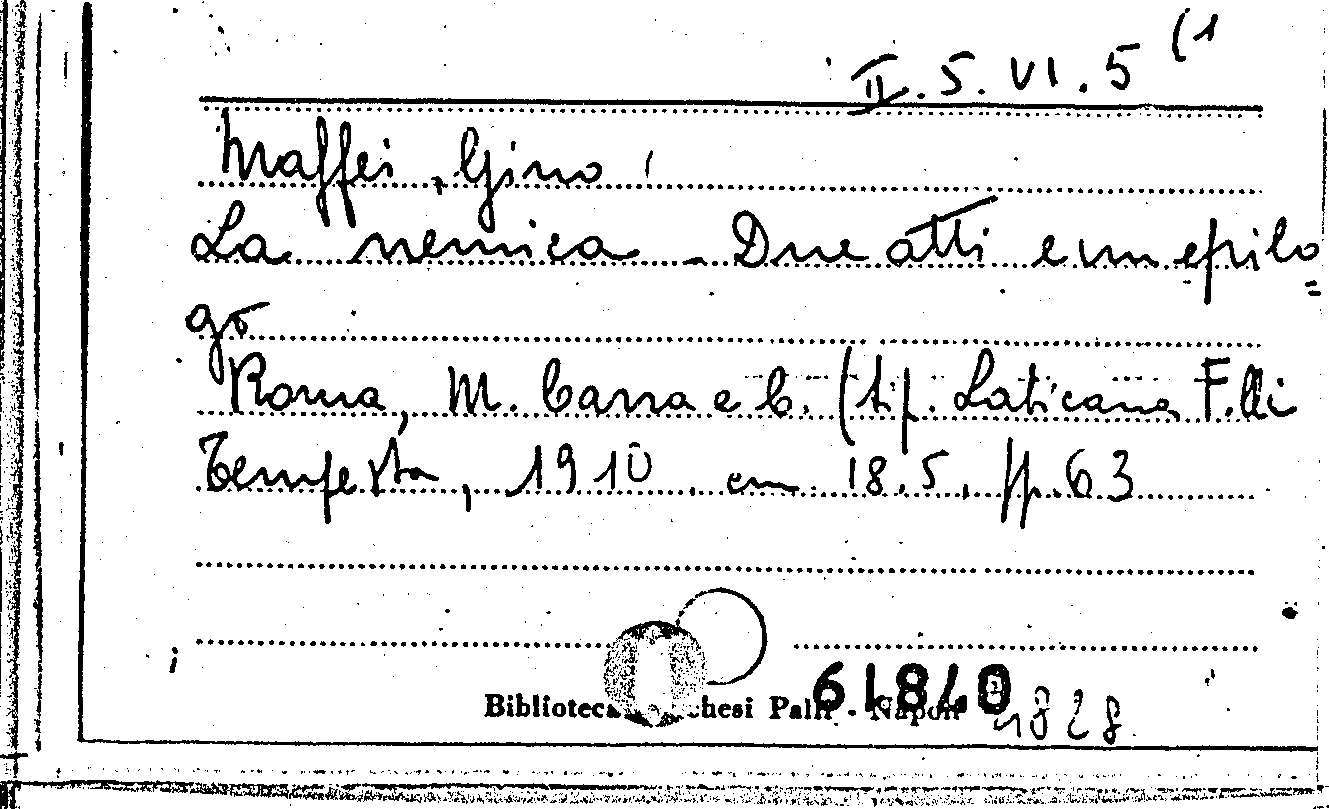 II.5.VI.5 (1
Maffei, Gino
La nemica - Due atti e un epilo=
go
Roma, M. Carra e C. (tip. Laticana F.lli
Tempesta, 1910. cm. 18,5, pp. 63
Biblioteca chesi Palli - Napoli
61840